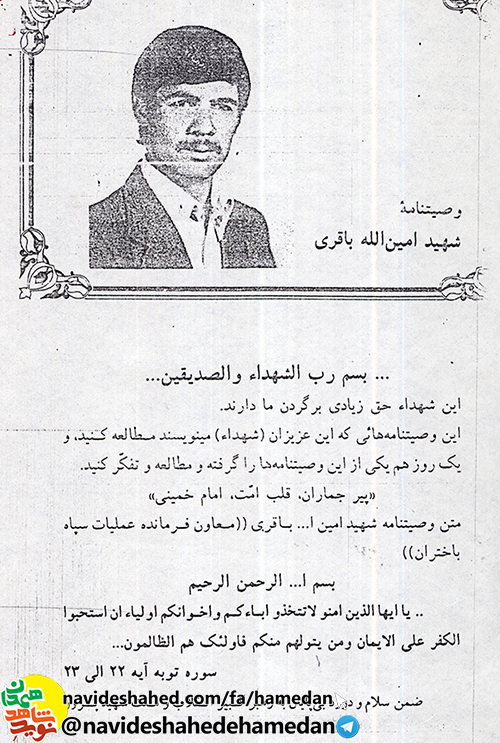 وصیتنامهٔ
شهید امین‌الله باقری
... بسم رب الشهداء والصدیقین...
این شهداء حق زیادی برگردن ما دارند.
این وصیتنامه‌هائی که این عزیزان (شهداء) مینویسند مطالعه کنید، و
یک روز هم یکی از این وصیتنامه‌ها را گرفته و مطالعه و تفکّر کنید.
«پیر جماران، قلب امّت، امام خمینی»
متن وصیتنامه شهید امین ا... باقری ((معاون فرمانده عملیات سپاه
باختران))
بسم ا... الرحمن الرحیم
.. یا ایها الذین امنو لاتتخذو اباءکم واخوانکم اولیاء ان استحبوا
الکفر علی الایمان ومن یتولهم منکم فاولئک هم الظالمون...
سوره توبه آیه ۲۲ الی ۲۳
ضمن سلام و درود
navideshahed.com/fa/hamedan
@navideshahedehamedan
نوید شاهد همدان